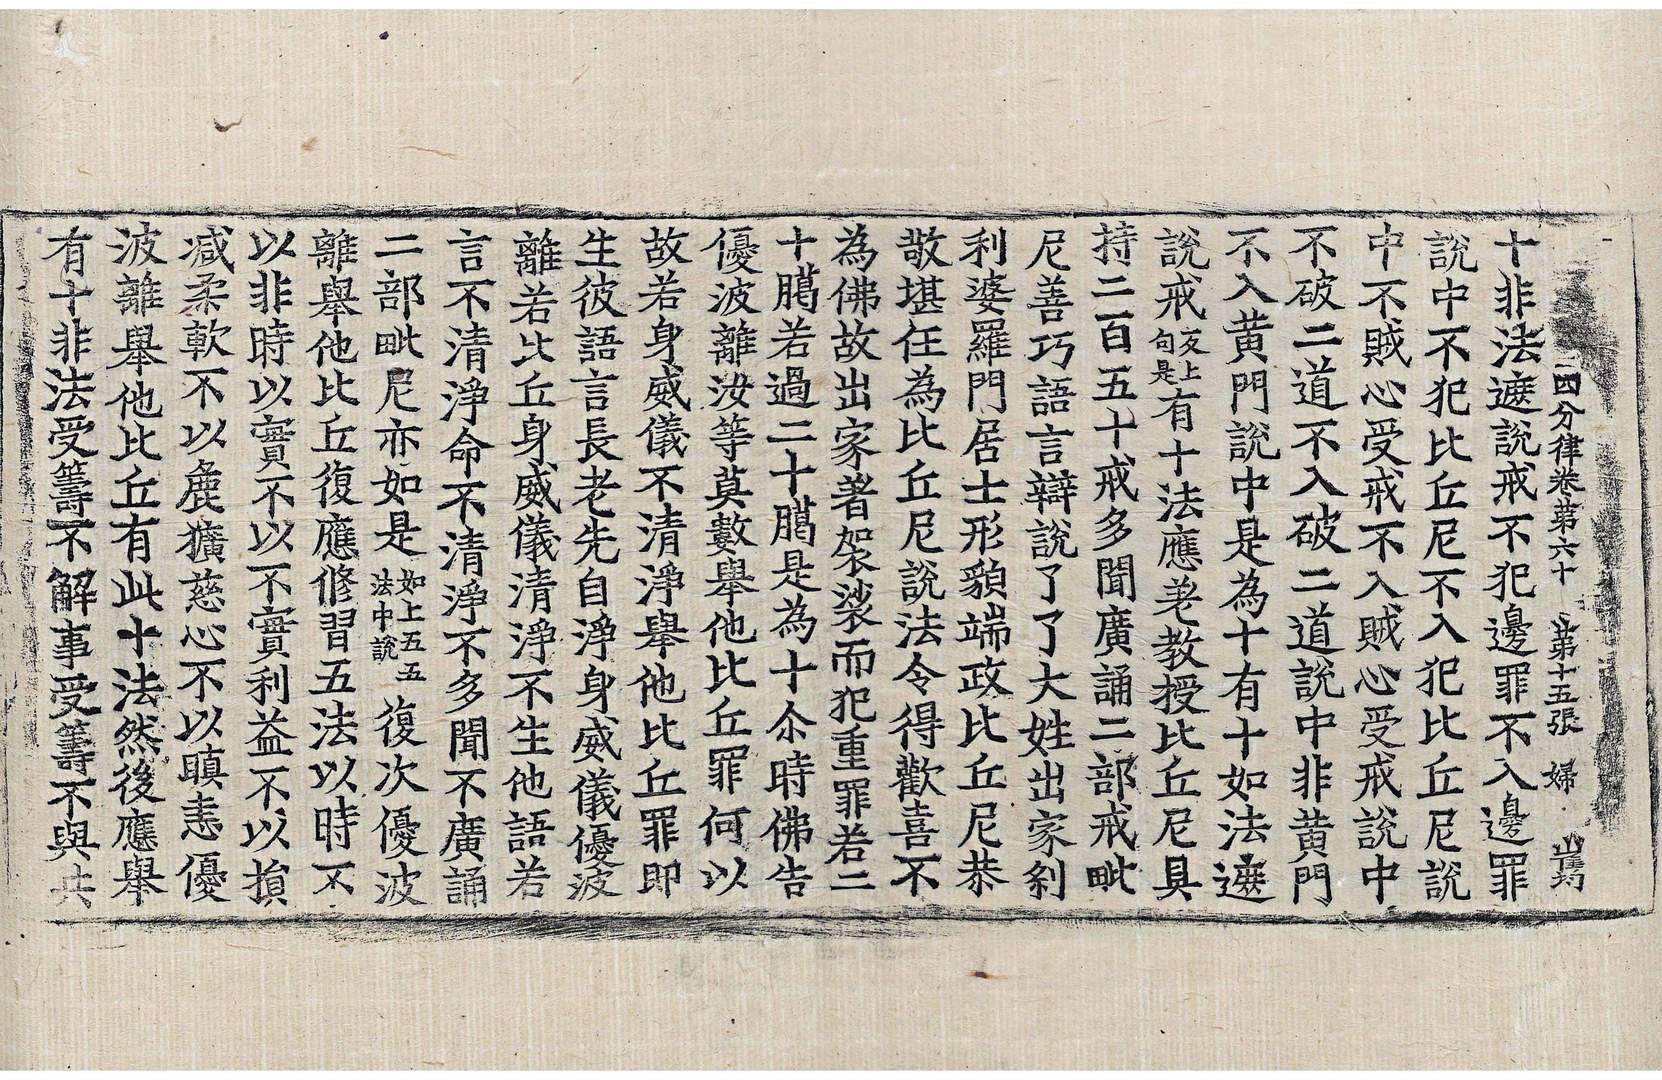 四分律卷第六十 第十五張 婦
十非法遮說戒不犯邊罪不入邊罪
說中不犯比丘尼不入犯比丘尼說
中不賊心受戒不入賊心受戒說中
不破二道不入破二道說中非黃門
不入黃門說中是為十有十如法遮
說戒反上句是有十法應差教授比丘尼具
持二百五十戒多聞廣誦二部戒毗
尼善巧語言辯說了了大姓出家剎
利婆羅門居士形貌端政比丘尼恭
敬堪任為比丘尼說法令得歡喜不
為佛故出家著袈裟而犯重罪若二
十臈若過二十臈是為十尒時佛告
優波離汝等莫數舉他比丘罪何以
故若身威儀不清淨舉他比丘罪即
生彼語言長老先自淨身威儀優波
離若比丘身威儀清淨不生他語若
言不清淨命不清淨不多聞不廣誦
二部毗尼亦如是如上五五法中說復次優波
離舉他比丘復應修習五法以時不
以非時以實不以不實利益不以損
減柔軟不以麁獷慈心不以瞋恚優
波離舉他比丘有此十法然後應舉
有十非法受籌不解事受籌不與共